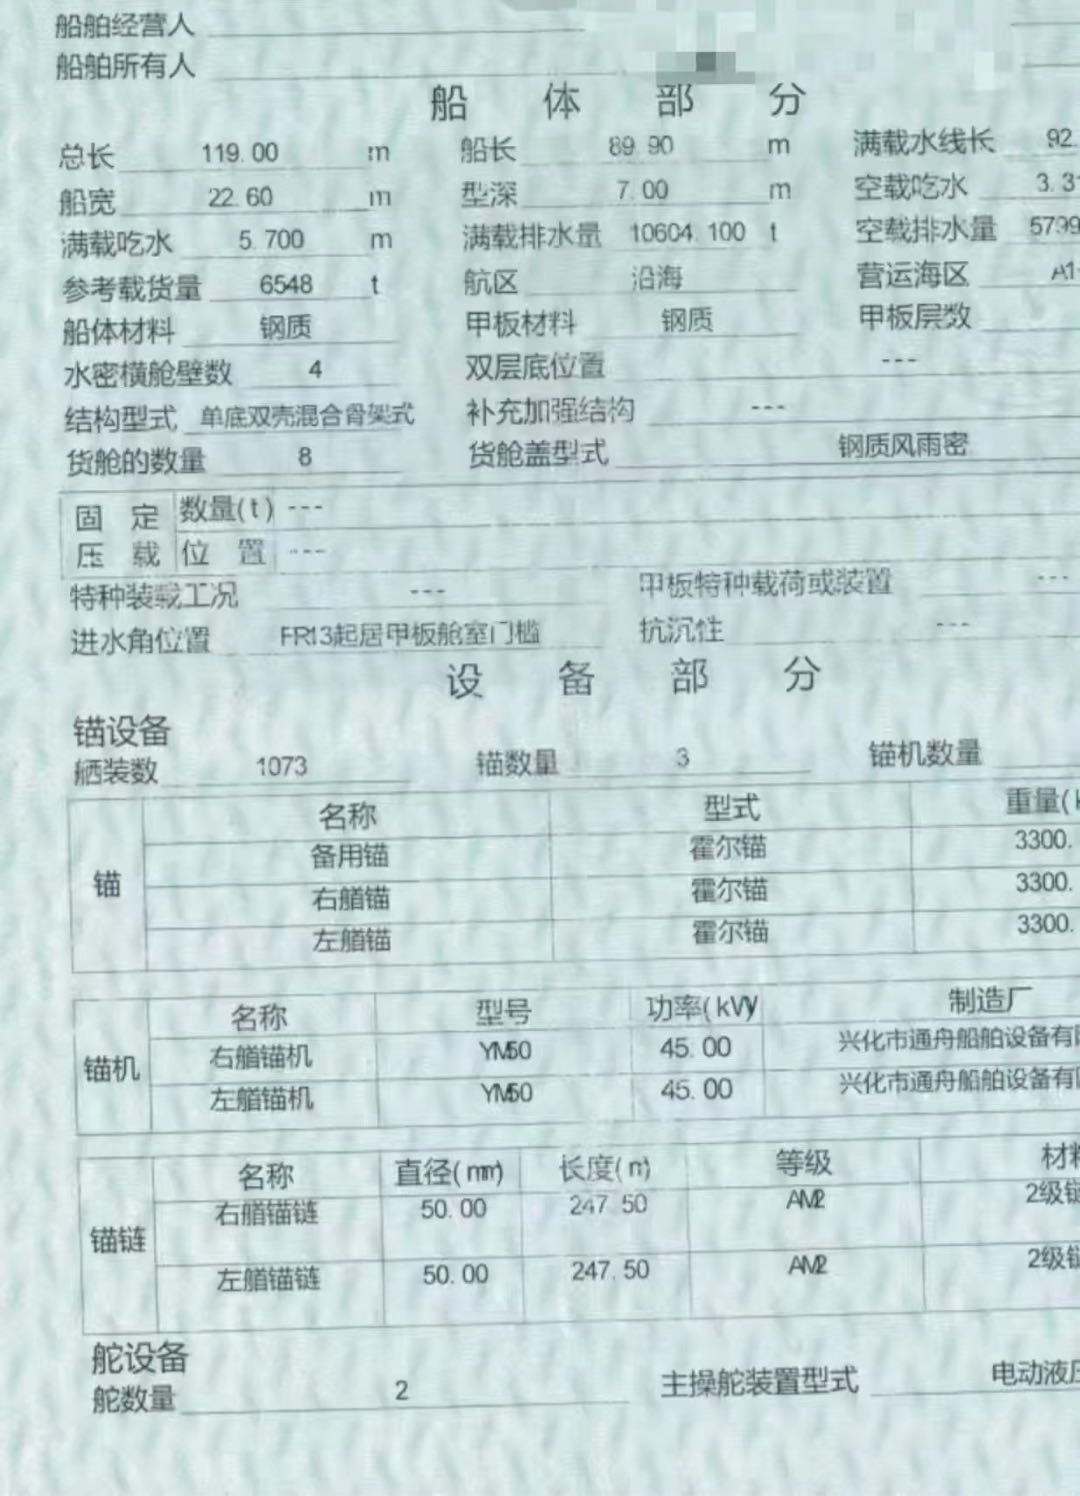 船舶经营人
船舶所有人
船 体 部 分
总长 119.00 m 船长 89.90 m 满载水线长 92.
船宽 22.60 m 型深 7.00 m 空载吃水 3.3
满载吃水 5.700 m 满载排水量 10604.100 t 空载排水量 5799
参考载货量 6548 t 航区 沿海 营运海区 A1
船体材料 钢质 甲板材料 钢质 甲板层数
水密横舱壁数 4 双层底位置 ---
结构型式 单底双壳混合骨架式 补充加强结构 ---
货舱的数量 8 货舱盖型式 钢质风雨密
固 定 数量(t) ---
压 载 位 置 ---
特种装载工况 --- 甲板特种载荷或装置 ---
进水角位置 FR13起居甲板舱室门槛 抗沉性 ---
设 备 部 分
锚设备
舾装数 1073 锚数量 3 锚机数量
名称 型式 重量(k
备用锚 霍尔锚 3300.
锚 右艏锚 霍尔锚 3300.
左艏锚 霍尔锚 3300.
名称 型号 功率(kW) 制造厂
锚机 右艏锚机 YM50 45.00 兴化市通舟船舶设备有限
左艏锚机 YM50 45.00 兴化市通舟船舶设备有限
名称 直径(mm) 长度(m) 等级 材料
右艏锚链 50.00 247.50 AM2 2级链
锚链
左艏锚链 50.00 247.50 AM2 2级链
舵设备
舵数量 2 主操舵装置型式 电动液压